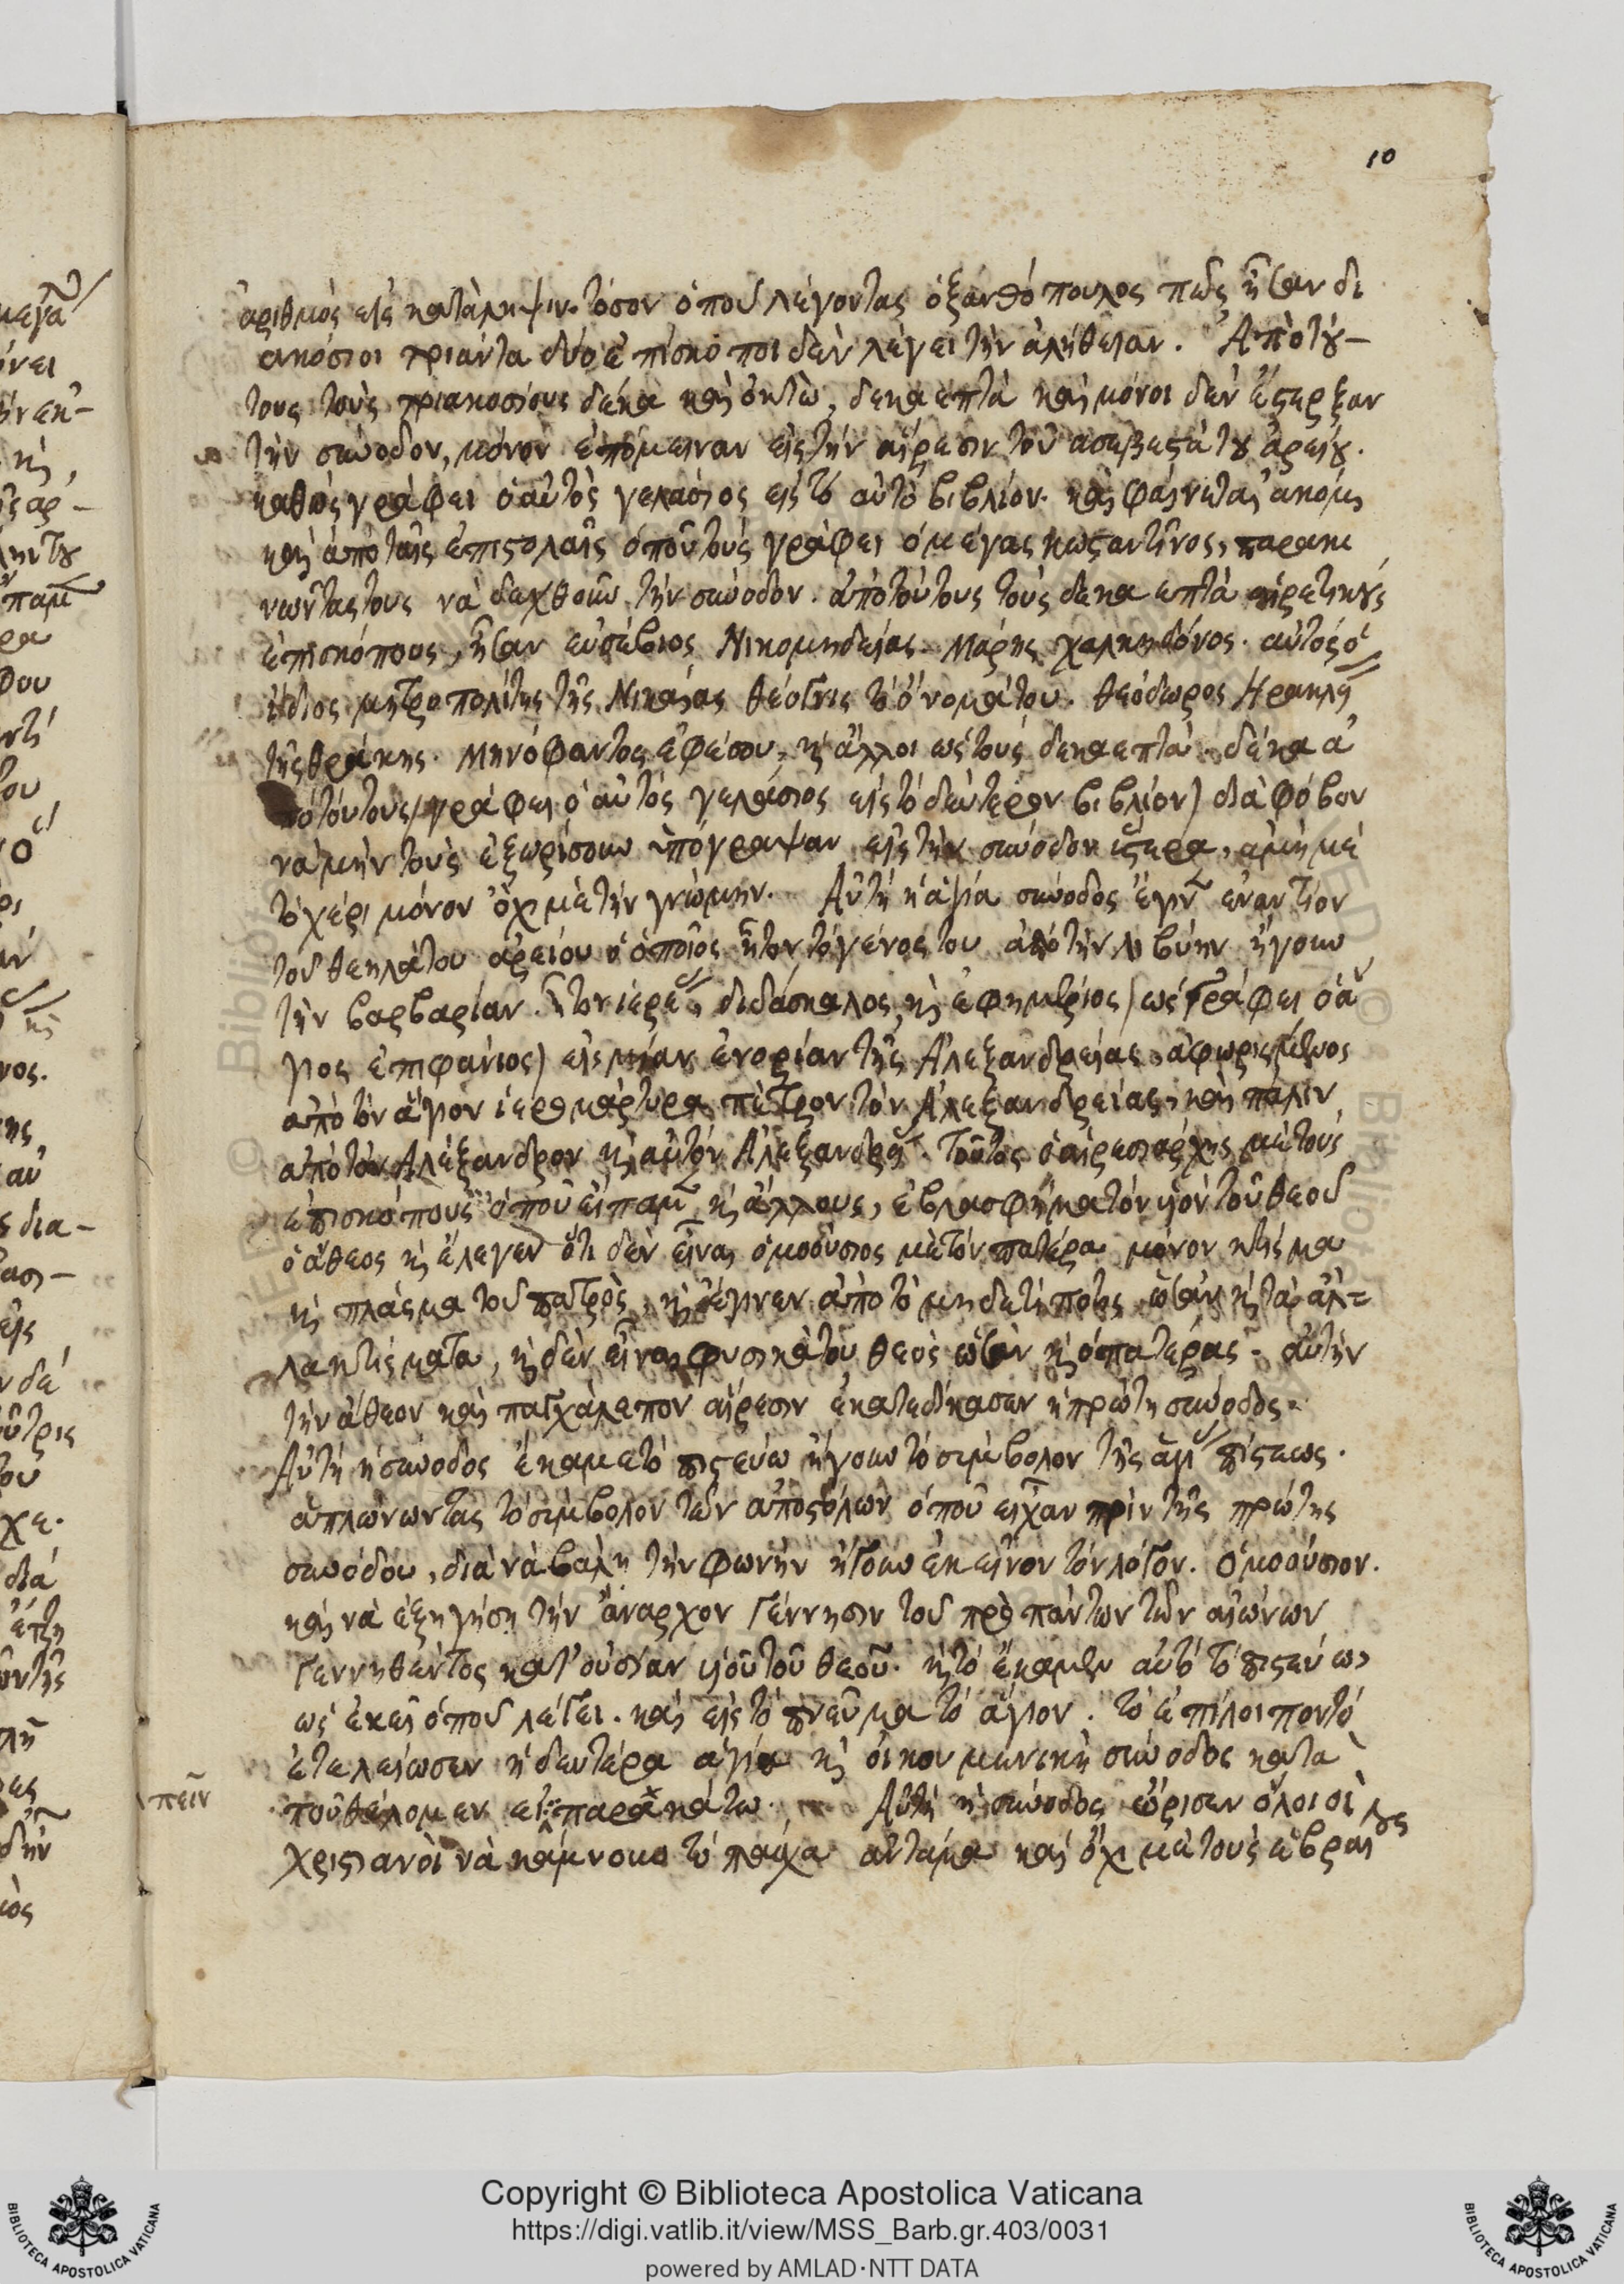 10
ἀριθμὸς εἰς κατάληψιν. τόσον ὁποῦ λέγοντας ὁ ξανθόπουλος πῶς ἦσαν δι
ακόσιοι τριάντα δύο ἐπίσκοποι δὲν λέγει τὴν ἀλήθειαν. Ἀπὸ τού-
τους τοὺς τριακοσίους δέκα καὶ ὀκτὼ, δεκαεπτὰ καὶ μόνοι δὲν ἔστερξαν
τὴν σύνοδον, μόνον ἐπόμειναν εἰς τὴν αἵρεσιν τοῦ ασεβεστάτου ἀρείου.
καθὼς γράφει ὁ αὐτὸς γελάσιος εἰς τὸ αὐτὸ βιβλίον. καὶ φαίνεται ἀκόμη
καὶ ἀπὸ ταῖς ἐπιστολαῖς ὁποῦ τοὺς γράφει ὁ μέγας κωσταντῖνος, παρακι
νῶντας τους νὰ δεχθοῦν τὴν σύνοδον. ἀπὸ τούτους τοὺς δεκαεπτὰ αἱρετικοὺς
ἐπισκόπους, ἦσαν εὐσέβιος Νικομηδείας. Μάρης χαλκηδόνος. αὐτὸς ὁ
ἴδιος μητροπολίτης τῆς Νικαίας θέογνις τὸ ὄνομά του. θεόδωρος Ηρακλεί
τῆς θράκης. Μηνόφαντος ἐφέσου, κὶ ἄλλοι ὡς τοὺς δεκαεπτά. δέκα ἀ
πὸ τούτους (γράφει ὁ αὐτὸς γελάσιος εἰς τὸ δεύτερον βιβλίον) διὰ φόβον
νὰ μὴν τοὺς ἐξωρίσουν ὑπόγραψαν εἰς τὴν σύνοδον ὕστερα, ἀμὴ μὲ
τὸ χέρι μόνον ὄχι μὲ τὴν γνώμην. Αὐτὴ ἡ ἁγία σύνοδος ἔγιν ἐναντίον
τοῦ θεηλάτου ἀρείου ὁ ὁποῖος ἦτον τὸ γένος του ἀπὸ τὴν λιβύην ἤγουν
τὴν βαρβαρίαν. ἦτον ἱερε, διδάσκαλος, κὶ ἐφημέριος (ὡς γράφει ὁ ἅ
γιος ἐπιφάνιος) εἰς μίαν ἐνορίαν τῆς Ἀλεξανδρείας ἀφωρισμένος
ἀπὸ τὸν ἅγιον ἱερομάρτυρα πέτρον τὸν Ἀλεξανδρείας, καὶ πάλιν
ἀπὸ τὸν Ἀλέξανδρον κὶ αὐτὸν Ἀλεξανδρεί. Τοῦτος ὁ αἱρεσιάρχης μὲ τοὺς
ἐπισκόπους ὁποῦ εἴπαμ κὶ ἄλλους, ἐβλασφήμα τὸν υἱὸν τοῦ θεοῦ
ὁ ἄθεος κὶ ἔλεγεν ὅτι δὲν εἶναι ὁμοούσιος μὲ τὸν πατέρα μόνον κτίσμα
κὶ πλάσμα τοῦ πατρὸς, κὶ ἔγινεν ἀπὸ τὸ μηδετίποτες ὡσὰν κὶ τὰ ἀλ=
λα κτίσματα, κὶ δὲν εἶναι φυσικά του θεὸς ὡσὰν κὶ ὁ πατέρας. αὐτὴν
τὴν ἄθεον καὶ παγχάλεπον αἵρεσιν ἐκατεδίκασεν ἡ πρώτη σύνοδος.
Αὐτὴ ἡ σύνοδος ἔκαμε τὸ πιστεύω ἤγουν τὸ σύμβολον τῆς ἁγί πίστεως.
ἁπλώνωντας τὸ σύμβολον τῶν ἀποστόλων ὁποῦ εἶχαν πρὶν τῆς πρώτης
συνόδου, διὰ νὰ βάλῃ τὴν φωνὴν ἤγουν ἐκεῖνον τὸν λόγον. ὁμοούσιον.
καὶ νὰ ἐξηγήσῃ τὴν ἄναρχον γέννησιν τοῦ πρὸ πάντων τῶν αἰώνων
γεννηθέντος κατ' οὐσίαν υἱοῦ τοῦ θεοῦ. κὶ τὸ ἔκαμεν αὐτὸ τὸ πιστεύω
ὡς ἐκεῖ ὁποῦ λέγει. καὶ εἰς τὸ πνεῦμα τὸ ἅγιον. τὸ ἐπίλοιπον τὸ
ἐτελείωσεν ἡ δευτέρα ἁγία κὶ οἰκουμενικὴ σύνοδος καθὼ
ποῦ θέλομεν εἰ παρακάτω. Αὐτὴ ἡ σύνοδος ὥρισεν ὅλοι οἱ
πεῖν
χριστιανοὶ νὰ κάμνουν τὸ πάσχα ἀντάμα καὶ ὄχι μὲ τοὺς ἑβραίους
Copyright © Biblioteca Apostolica Vaticana
https://digi.vatlib.it/view/MSS_Barb.gr.403/0031
powered by AMLAD·NTT DATA